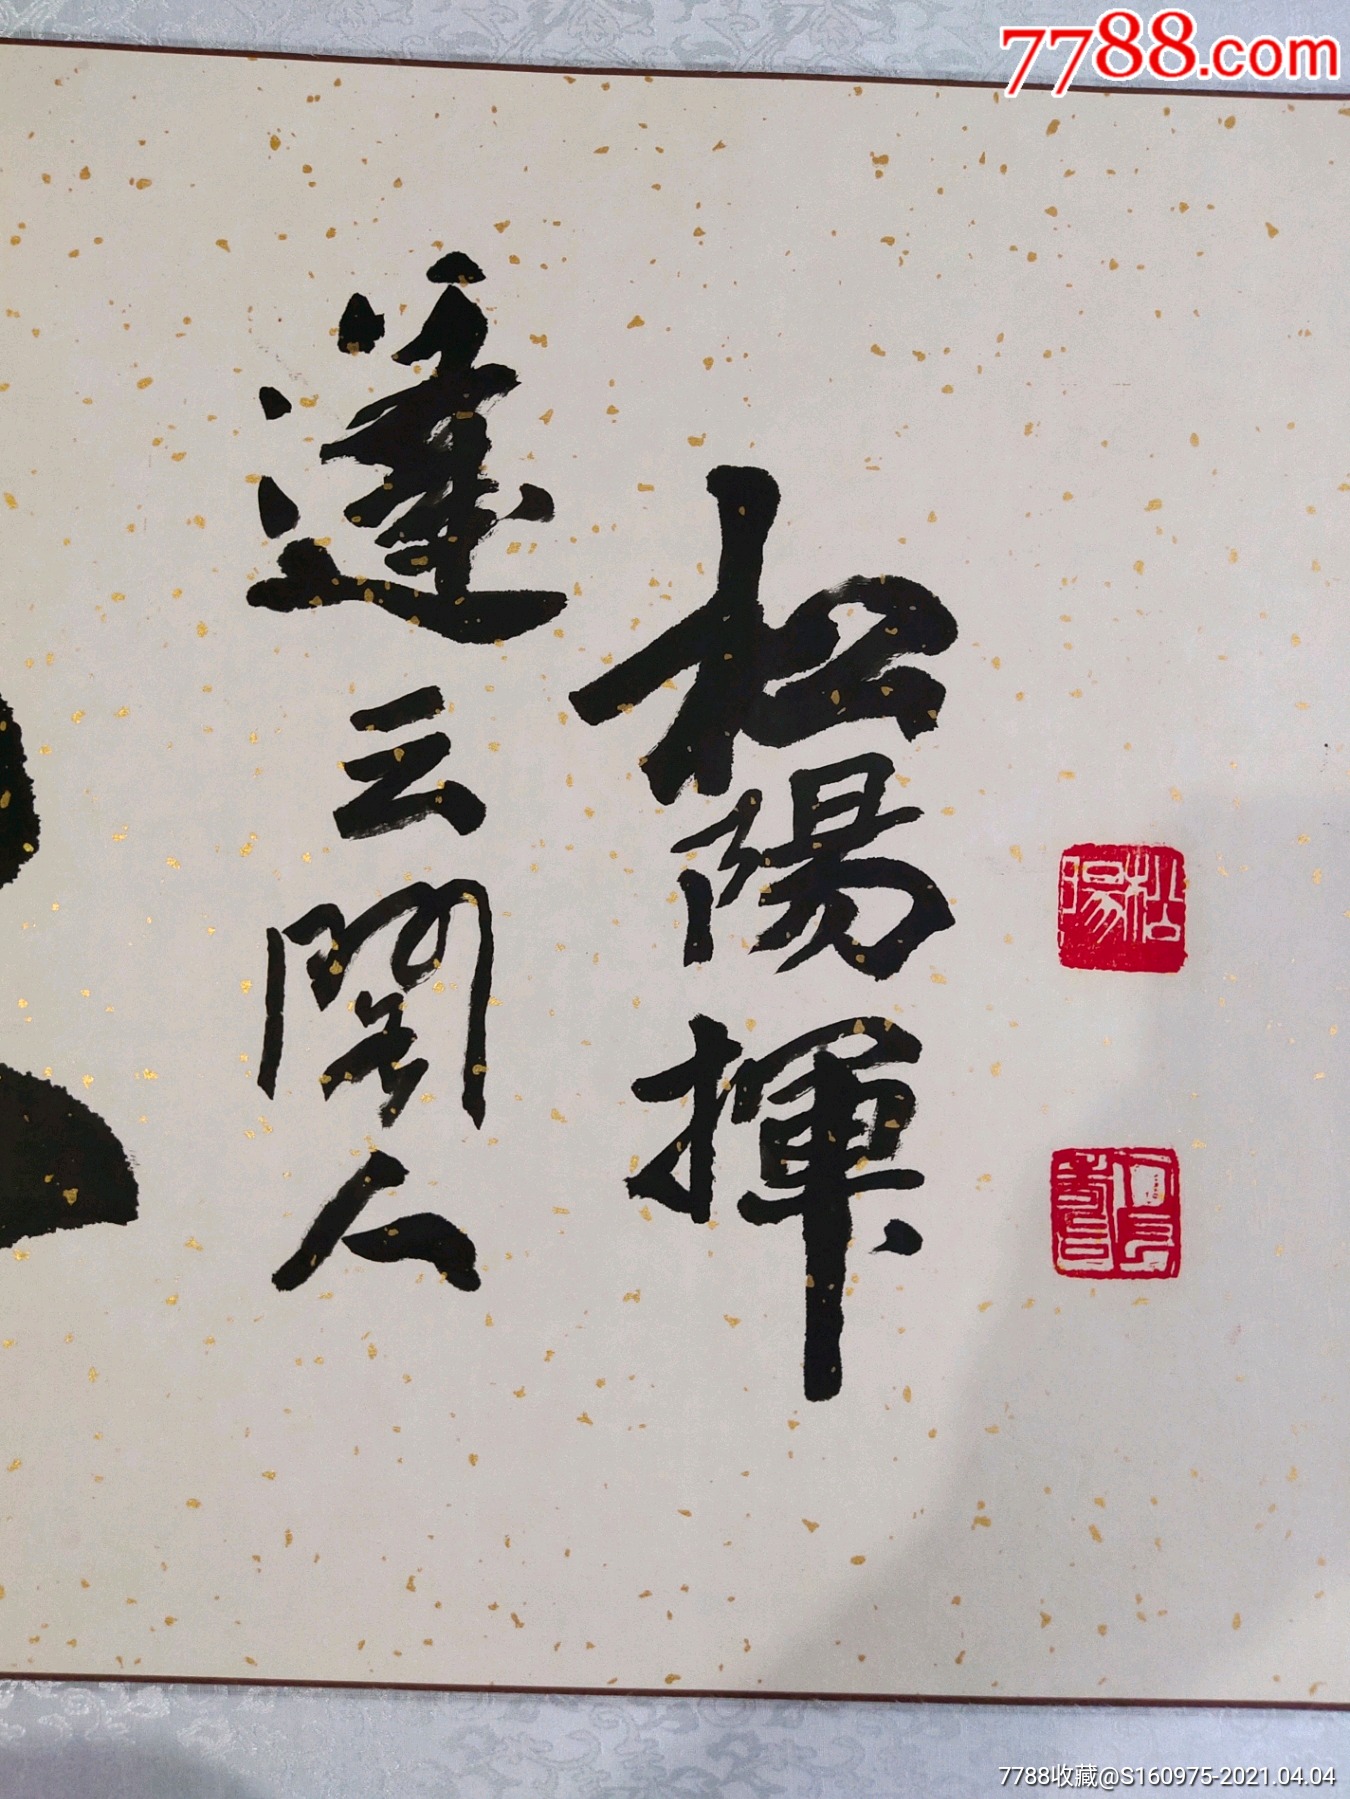 7788.com
蓬云閣人
松陽揮
松陽
7788收藏@S160975-2021.04.04